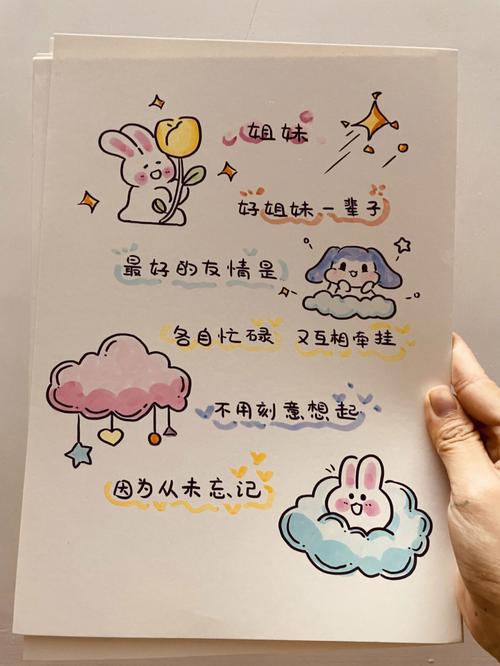 姐妹
好姐妹一辈子
最好的友情是
各自忙碌 又互相牵挂
不用刻意想起
因为从未忘记